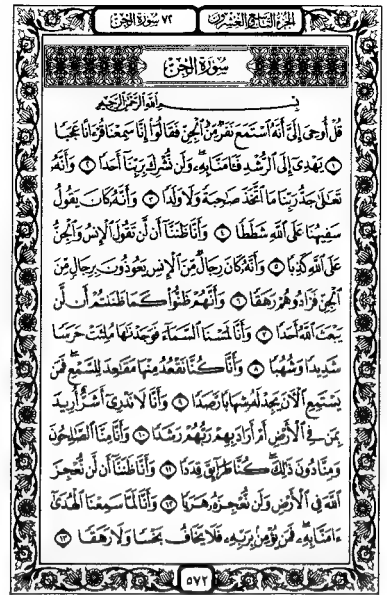 الجزء التاسع والعشرون ٧٢ سورة الجن
سورة الجن
بِسْمِ اللَّهِ الرَّحْمَٰنِ الرَّحِيمِ
قُلْ أُوحِيَ إِلَيَّ أَنَّهُ اسْتَمَعَ نَفَرٌ مِنَ الْجِنِّ فَقَالُوا إِنَّا سَمِعْنَا قُرْءَانًا عَجَبًا
١ يَهْدِي إِلَى الرُّشْدِ فَآمَنَّا بِهِ وَلَنْ نُشْرِكَ بِرَبِّنَا أَحَدًا ٢ وَأَنَّهُ
تَعَالَى جَدُّ رَبِّنَا مَا اتَّخَذَ صَاحِبَةً وَلَا وَلَدًا ٣ وَأَنَّهُ كَانَ يَقُولُ
سَفِيهُنَا عَلَى اللَّهِ شَطَطًا ٤ وَأَنَّا ظَنَنَّا أَنْ لَنْ تَقُولَ الْإِنْسُ وَالْجِنُّ
عَلَى اللَّهِ كَذِبًا ٥ وَأَنَّهُ كَانَ رِجَالٌ مِنَ الْإِنْسِ يَعُوذُونَ بِرِجَالٍ مِنَ
الْجِنِّ فَزَادُوهُمْ رَهَقًا ٦ وَأَنَّهُمْ ظَنُّوا كَمَا ظَنَنْتُمْ أَنْ لَنْ
يَبْعَثَ اللَّهُ أَحَدًا ٧ وَأَنَّا لَمَسْنَا السَّمَاءَ فَوَجَدْنَاهَا مُلِئَتْ حَرَسًا
شَدِيدًا وَشُهُبًا ٨ وَأَنَّا كُنَّا نَقْعُدُ مِنْهَا مَقَاعِدَ لِلسَّمْعِ فَمَنْ
يَسْتَمِعِ الْآنَ يَجِدْ لَهُ شِهَابًا رَصَدًا ٩ وَأَنَّا لَا نَدْرِي أَشَرٌّ أُرِيدَ
بِمَنْ فِي الْأَرْضِ أَمْ أَرَادَ بِهِمْ رَبُّهُمْ رَشَدًا ١٠ وَأَنَّا مِنَّا الصَّالِحُونَ
وَمِنَّا دُونَ ذَٰلِكَ كُنَّا طَرَائِقَ قِدَدًا ١١ وَأَنَّا ظَنَنَّا أَنْ لَنْ نُعْجِزَ
اللَّهَ فِي الْأَرْضِ وَلَنْ نُعْجِزَهُ هَرَبًا ١٢ وَأَنَّا لَمَّا سَمِعْنَا الْهُدَى
ءَامَنَّا بِهِ فَمَنْ يُؤْمِنْ بِرَبِّهِ فَلَا يَخَافُ بَخْسًا وَلَا رَهَقًا ١٣
٥٧٢